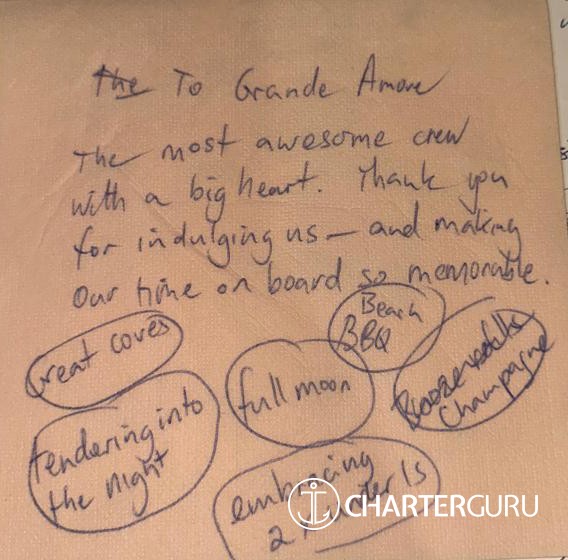 the To Grande Amore
The most awesome crew
with a big heart. Thank you
for indulging us – and making
our time on board so memorable.
Great coves
Beach
BBQ
full moon
Champagne
tendering into
the night
embracing
2 x under 15
CHARTERGURU